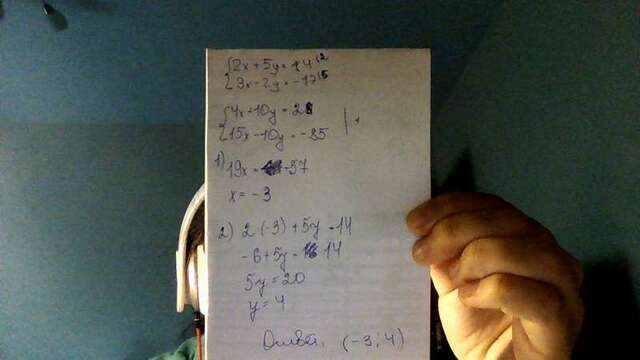 {2x + 5y = 14 |2
{3x - 2y = -17 |5
{4x + 10y = 28
{15x - 10y = -85 | +
1) 19x = -57
x = -3
2) 2·(-3) + 5y = 14
-6 + 5y = 14
5y = 20
y = 4
Ответ: (-3; 4)